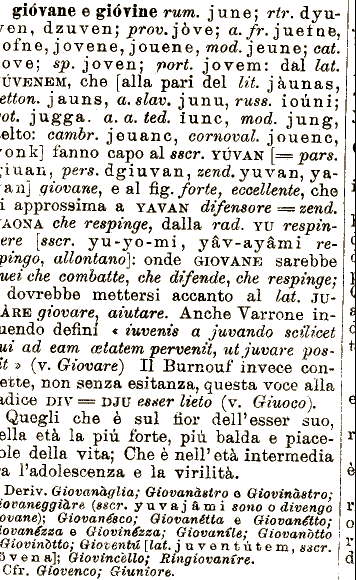 gióvane e gióvine rum. june; rtr. dyu-
ven, dzuven; prov. jòve; a. fr. jueine,
ofne, jovene, jouene, mod. jeune; cat.
ove; sp. joven; port. jovem: dal lat.
ÚVENEM, che [alla pari del lit. jàunas,
etton. jauns, a. slav. junu, russ. ioúni;
ot. jugga. a. a. ted. iunc, mod. jung,
elto: cambr. jeuanc, cornoval. jouenc,
onk] fanno capo al sscr. YÚVAN [= pars.
giuan, pers. dgiuvan, zend. yuvan, ya-
an] giovane, e al fig. forte, eccellente, che
i approssima a YAVAN difensore = zend.
AONA che respinge, dalla rad. YU respin-
ere [sscr. yu-yo-mi, yâv-ayâmi re-
pingo, allontano]: onde GIOVANE sarebbe
quei che combatte, che difende, che respinge;
dovrebbe mettersi accanto al lat. JU-
ÀRE giovare, aiutare. Anche Varrone in-
uendo definì « iuvenis a juvando scilicet
ui ad eam œtatem pervenit, ut juvare pos-
it » (v. Giovare) Il Burnouf invece con-
ette, non senza esitanza, questa voce alla
adice DIV = DJU esser lieto (v. Giuoco).
Quegli che è sul fior dell'esser suo,
ella età la più forte, più balda e piace-
ole della vita; Che è nell'età intermedia
a l'adolescenza e la virilità.
Deriv. Giovanàglia; Giovanàstro e Giovinàstro;
iovaneggiàre (sscr. yuvajâmi sono o divengo
ovane); Giovanésco; Giovanétta e Giovanétto;
iovanézza e Giovinézza; Giovaníle; Giovanòtto
Giovinòtto; Gioventú [lat. juventútem, sscr.
òvena]; Giovincèllo; Ringiovaníre.
Cfr. Giovenco; Giuniore.